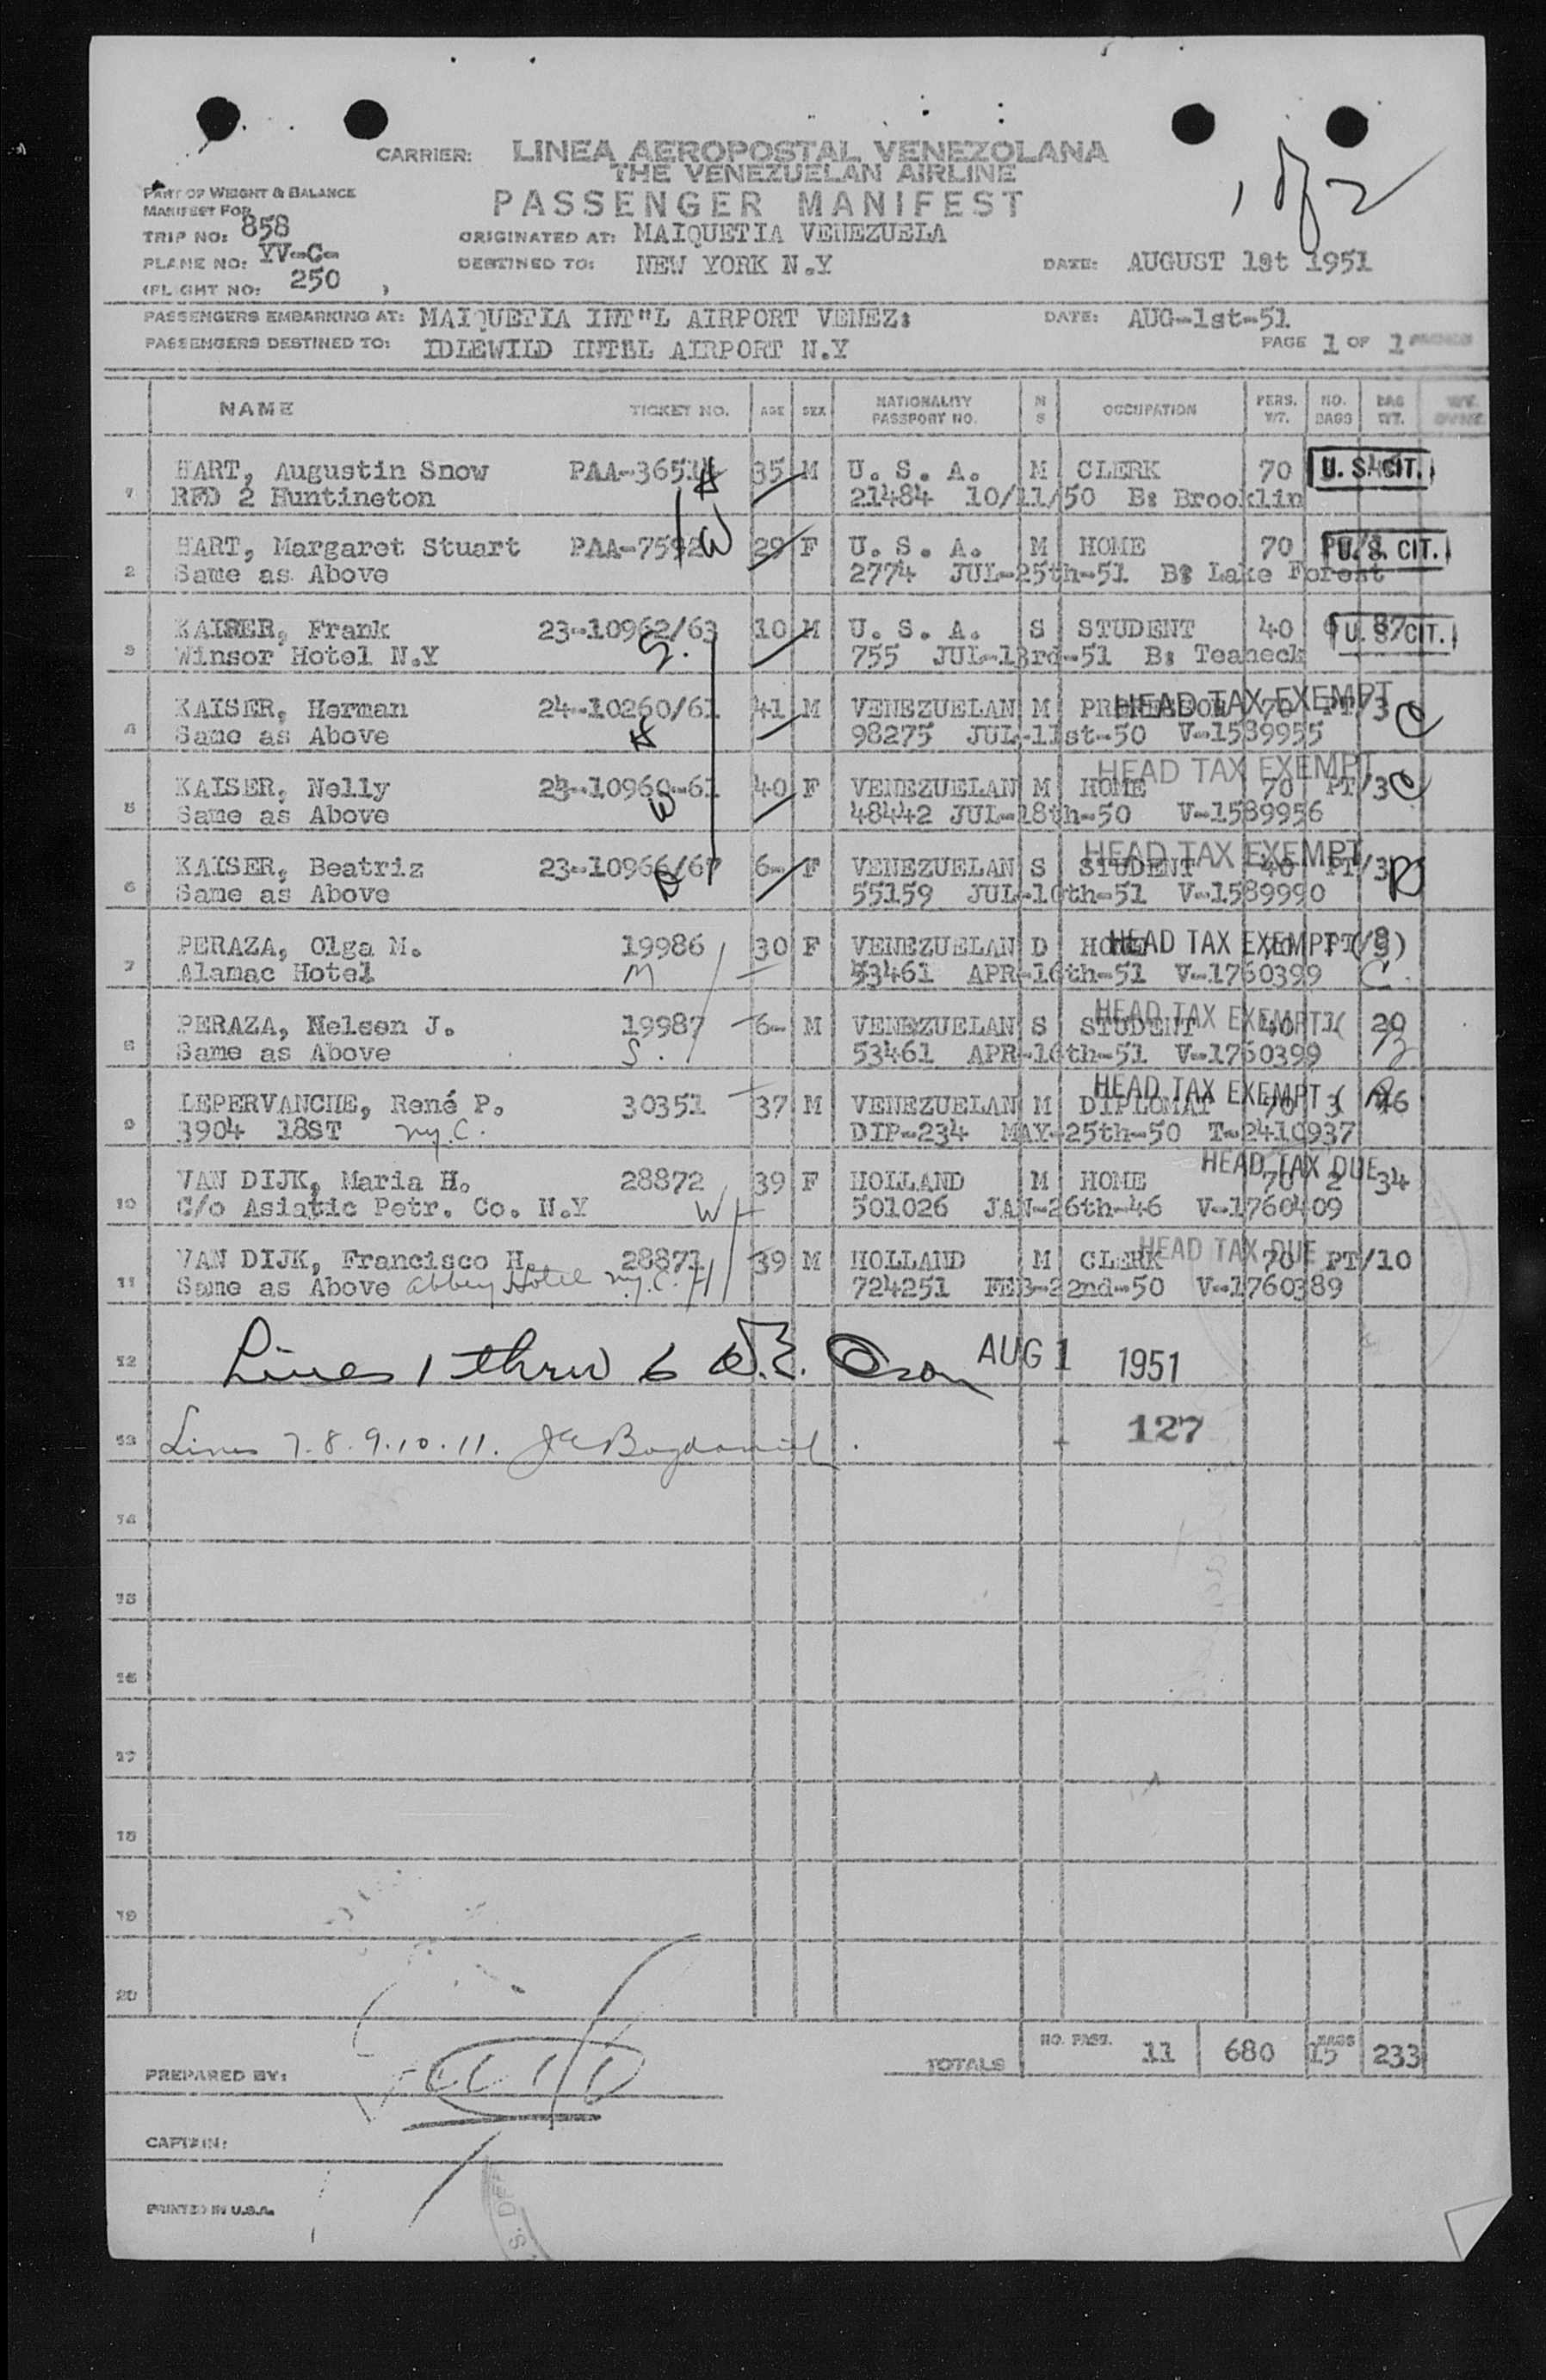 1 of 2
CARRIER: LINEA AEROPOSTAL VENEZOLANA
THE VENEZUELAN AIRLINE
PASSENGER MANIFEST
PART OF WEIGHT & BALANCE
MANIFEST FOR
TRIP NO: 858 ORIGINATED AT: MAIQUETIA VENEZUELA
PLANE NO: YV-C- DESTINED TO: NEW YORK N.Y DATE: AUGUST 1st 1951
(FLIGHT NO: 250 )
PASSENGERS EMBARKING AT: MAIQUETIA INT"L AIRPORT VENEZ: DATE: AUG-1st-51
PASSENGERS DESTINED TO: IDLEWILD INTEL AIRPORT N.Y PAGE 1 OF 1
NAME TICKET NO. AGE SEX NATIONALITY PASSPORT NO. M S OCCUPATION PERS. WT. NO. BAGS BAG WT.
1 HART, Augustin Snow PAA-36514 H 35 M U. S. A. M CLERK 70 U. S. CIT.
RFD 2 Huntineton 21484 10/11/50 B: Brooklin
2 HART, Margaret Stuart PAA-7592 W 29 F U. S. A. M HOME 70 U. S. CIT.
Same as Above 2774 JUL-25th-51 B: Lake Forest
3 KAISER, Frank 23-10962/63 10 M U. S. A. S STUDENT 40 87 U. S. CIT.
Winsor Hotel N.Y S. 755 JUL-13rd-51 B: Teaneck
4 KAISER, Herman 24-10260/61 41 M VENEZUELAN M PROFESSOR HEAD TAX EXEMPT 70 PT/3 C
Same as Above H 98275 JUL-11st-50 V-1589955
5 KAISER, Nelly 23-10960-61 40 F VENEZUELAN M HOME HEAD TAX EXEMPT 70 PT/3 C
Same as Above W 48442 JUL-18th-50 V-1589956
6 KAISER, Beatriz 23-10966/67 6- F VENEZUELAN S STUDENT HEAD TAX EXEMPT 40 PT/3
Same as Above D 55159 JUL-10th-51 V-1589990
7 PERAZA, Olga M. 19986 30 F VENEZUELAN D HOME HEAD TAX EXEMPT 70
Alamac Hotel M 53461 APR-16th-51 V-1760399 C.
8 PERAZA, Nelson J. 19987 6- M VENEZUELAN S STUDENT HEAD TAX EXEMPT 40 1 20
Same as Above S. 53461 APR-16th-51 V-1760399
9 LEPERVANCHE, René P. 30351 37 M VENEZUELAN M DIPLOMAT HEAD TAX EXEMPT 70 3 46
3904 18ST N.Y.C. DIP-234 MAY-25th-50 T-2410937
10 VAN DIJK, Maria H. 28872 39 F HOLLAND M HOME HEAD TAX DUE 70 2 34
C/o Asiatic Petr. Co. N.Y W 501026 JAN-26th-46 V-1760409
11 VAN DIJK, Francisco H. 28871 39 M HOLLAND M CLERK HEAD TAX DUE 70 PT/10
Same as Above Abbey Hotel N.Y.C. H 724251 FEB-22nd-50 V-1760389
12 Lines 1 thru 6 AUG 1 1951
13 Lines 7.8.9.10.11. 127
14
15
16
17
18
19
20
TOTALS NO. PASS. 11 680 BAGS 15 233
PREPARED BY:
CAPTAIN:
PRINTED IN U.S.A.